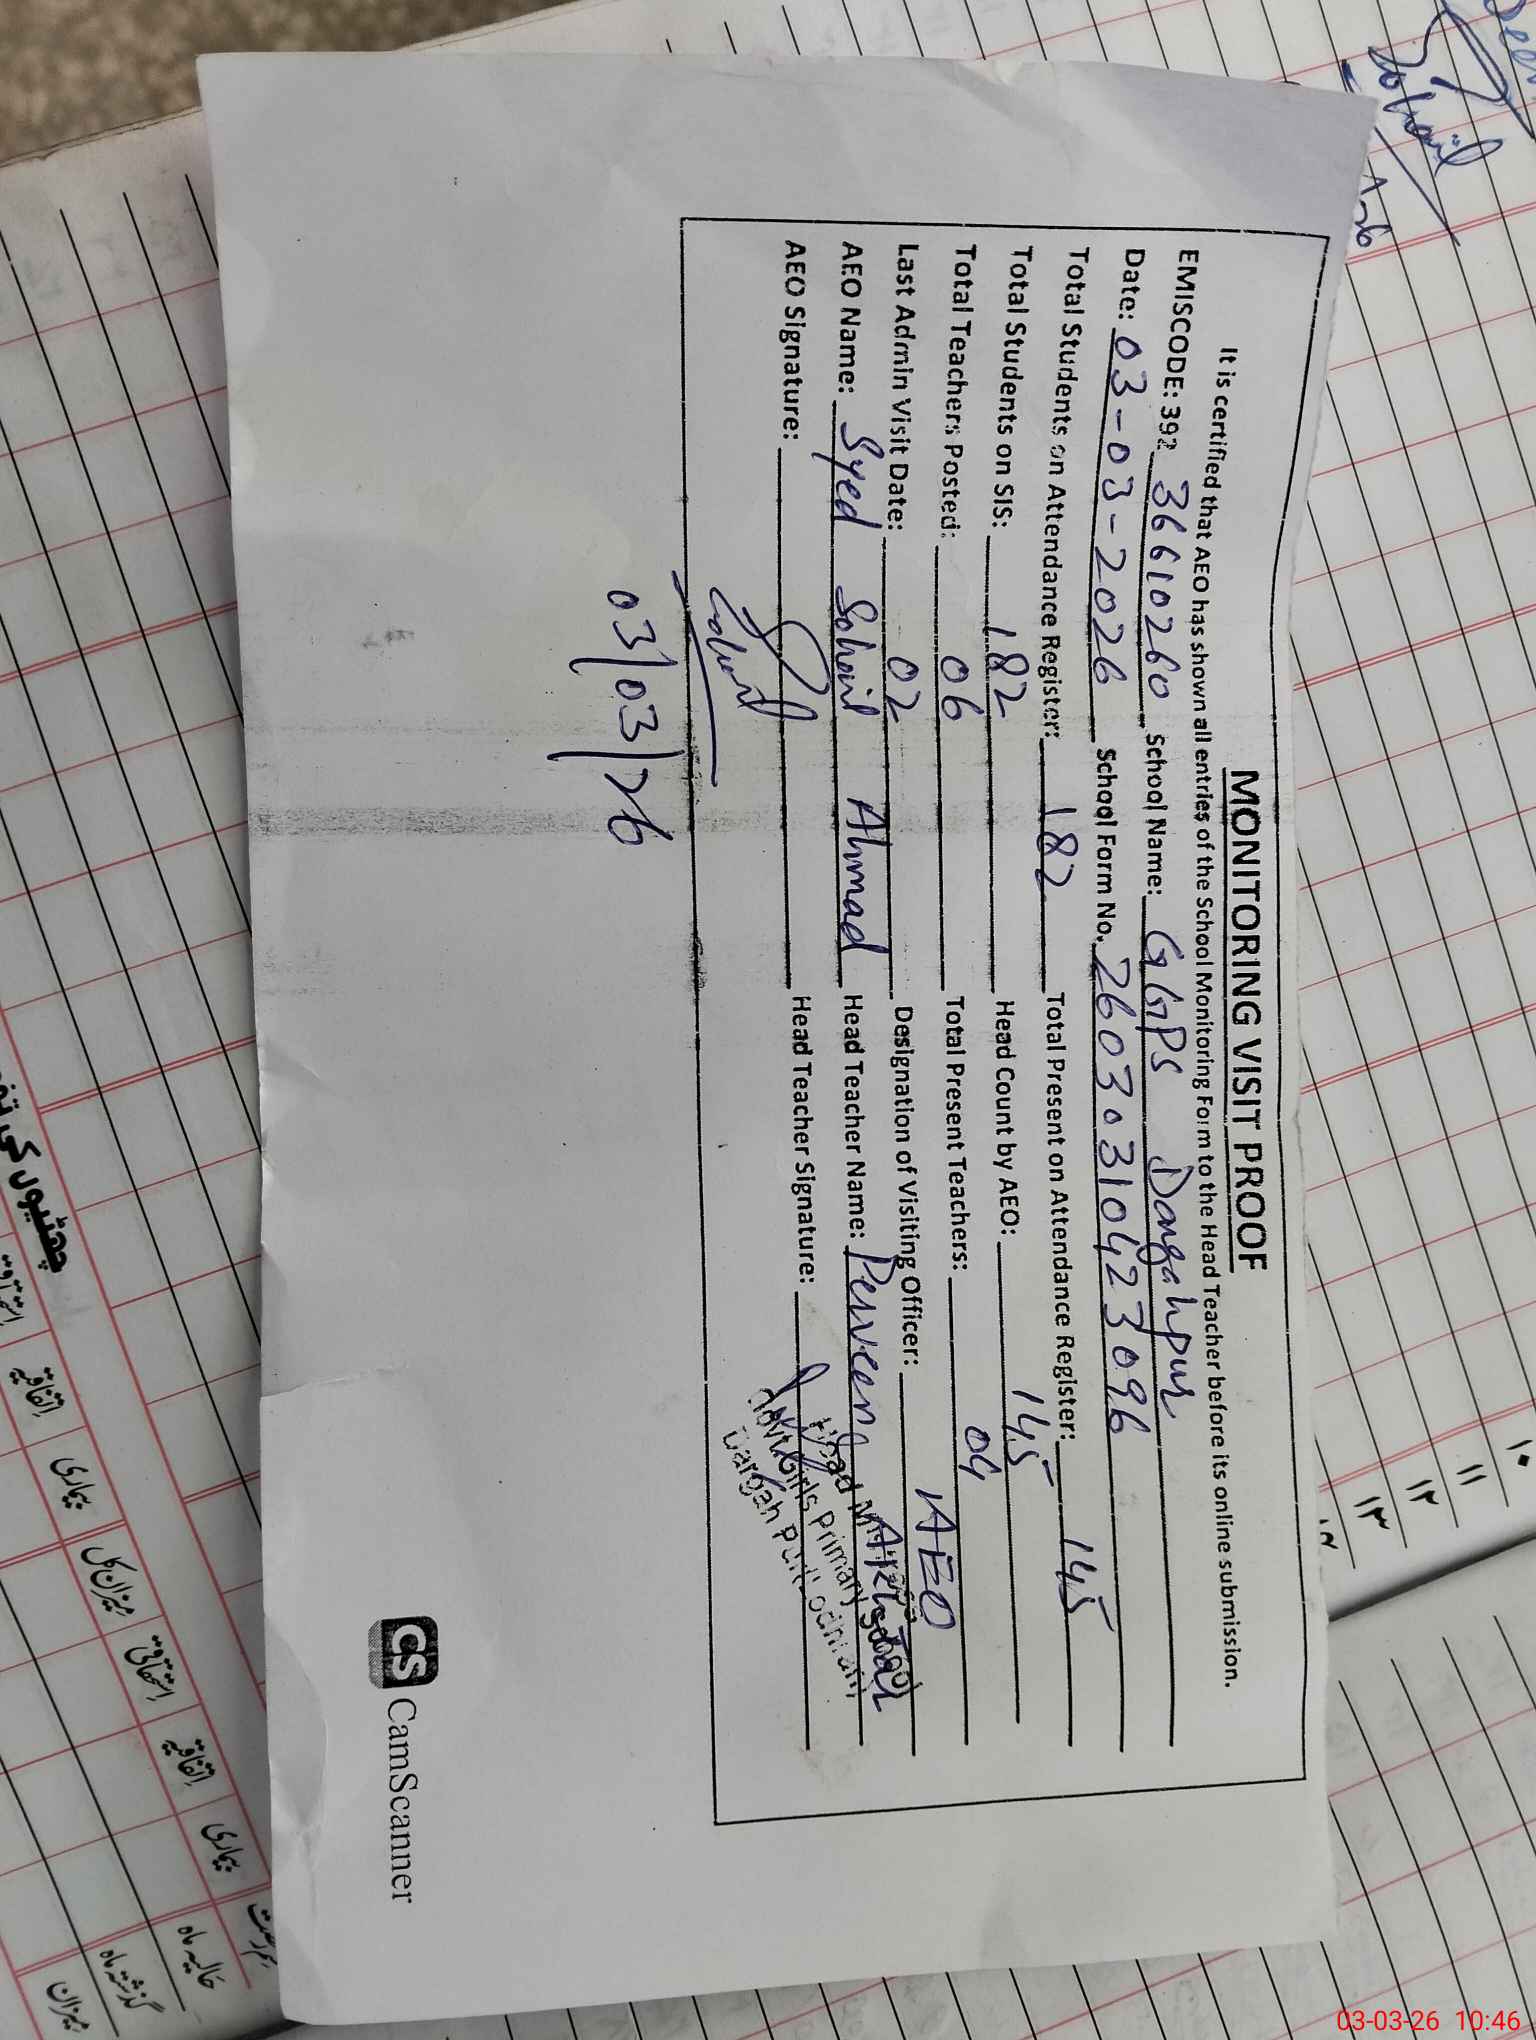 MONITORING VISIT PROOF
It is certified that AEO has shown all entries of the School Monitoring Form to the Head Teacher before its online submission.
EMISCODE: 392 36610260 School Name: GGPS Dargahpur
Date: 03-03-2026 School Form No. 26030310423096
Total Students on Attendance Register: 182 Total Present on Attendance Register: 145
Total Students on SIS: 182 Head Count by AEO: 145
Total Teachers Posted: 06 Total Present Teachers: 04
Last Admin Visit Date: 02 Designation of Visiting Officer: AEO
AEO Name: Syed Sohail Ahmad Head Teacher Name: Perveen Akhtar
AEO Signature: Sohail Head Teacher Signature:
Head Mistress
Govt. Girls Primary School
Dargah Pur Lodhran
03/03/26
CS CamScanner
Sohail
۱۰
۱۱
۱۲
۱۳
چھٹیوں کی
اتفاقیہ
بیماری
میزان کل
استحقاقی
اتفاقیہ
بیماری
حالیہ ماہ
گذشتہ ماہ
میزان
03-03-26 10:46